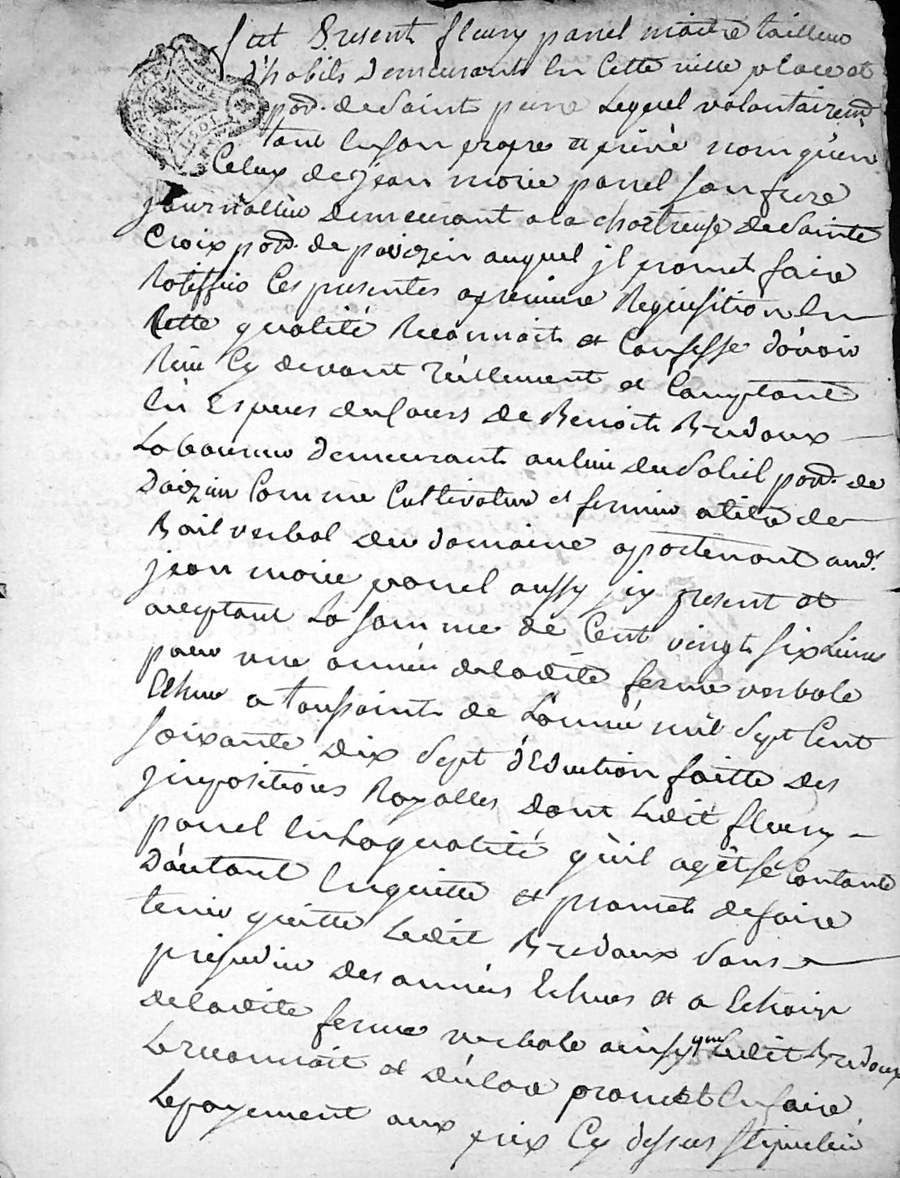 fut Present fleury panel maitre tailleur
d'habils demeurant En Cette ville place et
pss. de Saint pierre Lequel volontairemt
tant En son propre et privé nom qu'en
Celuy de jean marie panel son frere
journallier demeurant a la chartreuse de Sainte
Croix pss. de pavezin auquel jl promet faire
Rattiffier Ces presentes a premiere Requisition En
Cette qualité Reconnoit et Confesse d'avoir
Reçu Cy devant réellement et Comptant
En Especes du Cours de Benoit Bredoux
Laboureur demeurant au lieu du Soleil pss. de
Comme Cultivateur et fermier a titre de
Bail verbal du domaine apartenant aud.
jean marie panel aussy jcy present et
aceptant La somme de Cent vingt six Livres
pour une année de ladite ferme verbale
Echue a toussaints de L'année mil Sept Cent
soixante dix Sept déduction faitte des
jmpositions Royalles dont Ledit fleury
panel En La qualité qu'il agit se Contante
D'autant En quitte et promet de faire
tenir quitte Ledit Bredoux sans
prejudice des années Echues et a Echoir
de ladite ferme verbale ainsy que Ledit Bredoux
Le reconnoit et déclare promet En faire
Le payement aux prix Cy dessus